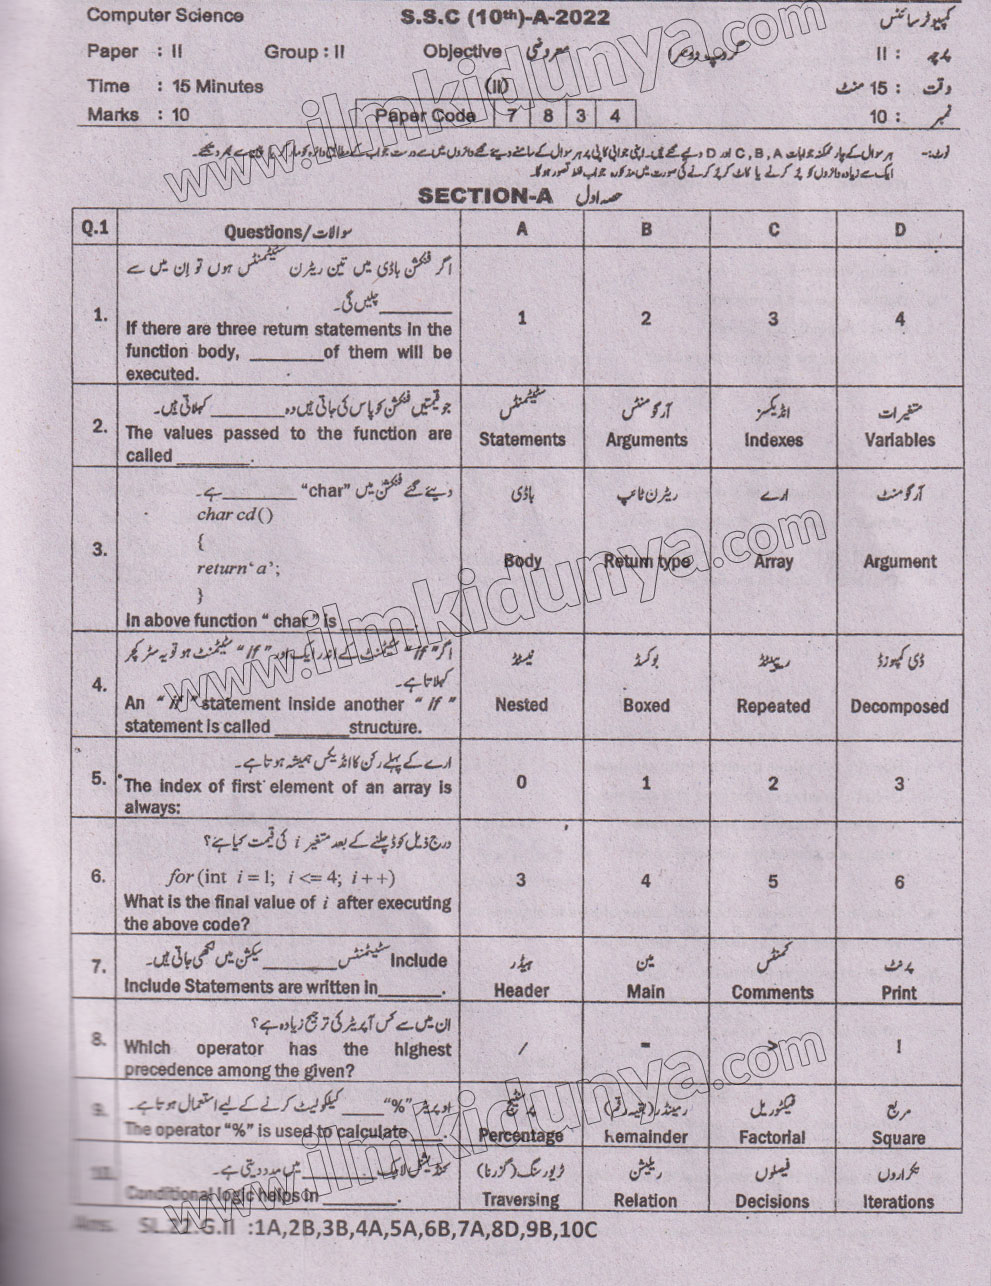 Computer Science S.S.C (10th)-A-2022 کمپیوٹر سائنس
Paper : II Group : II Objective معروضی گروپ دوسرا پرچہ : II
Time : 15 Minutes (II) وقت : 15 منٹ
Marks : 10 Paper Code 7 8 3 4 نمبر : 10
نوٹ:- ہر سوال کے چار ممکنہ جوابات A ، B ، C اور D دیے گئے ہیں۔ اپنی جوابی کاپی پر ہر سوال کے سامنے دیئے گئے دائروں میں سے درست جواب کے مطابق دائرہ کو مارکر یا پین سے بھر دیجئے۔
ایک سے زیادہ دائروں کو پُر کرنے یا کاٹ کر پُر کرنے کی صورت میں مذکورہ جواب غلط تصور ہوگا۔
SECTION-A حصہ اول
Q.1 Questions/سوالات A B C D
اگر فنکشن باڈی میں تین ریٹرن سٹیٹمنٹس ہوں تو ان میں سے
________ چلیں گی۔
1. If there are three return statements in the 1 2 3 4
function body, ________of them will be
executed.
جو قیمتیں فنکشن کو پاس کی جاتی ہیں وہ ________ کہلاتی ہیں۔ سٹیٹمنٹس آرگومنٹس انڈیکسز متغیرات
2. The values passed to the function are Statements Arguments Indexes Variables
called ________.
دیئے گئے فنکشن میں "char" ________ ہے۔ باڈی ریٹرن ٹائپ ارے آرگومنٹ
char cd()
{
3. return‘a’; Body Return type Array Argument
}
In above function “ char ” is ________.
اگر "If" سٹیٹمنٹ کے اندر ایک اور "If" سٹیٹمنٹ ہو تو یہ سٹرکچر نیسٹڈ بوکسڈ ریپیٹڈ ڈی کمپوزڈ
کہلاتا ہے۔
4. An “ if ” statement inside another “ If ” Nested Boxed Repeated Decomposed
statement is called ________structure.
ارے کے پہلے رکن کا انڈیکس ہمیشہ ہوتا ہے۔
5. The index of first element of an array is 0 1 2 3
always:
درج ذیل کوڈ چلنے کے بعد متغیر i کی قیمت کیا ہے؟
6. for (int i = 1; i <= 4; i ++) 3 4 5 6
What is the final value of i after executing
the above code?
Include سٹیٹمنٹس ________ سیکشن میں لکھی جاتی ہیں۔ ہیڈر مین کمنٹس پرنٹ
7. Include Statements are written in_______. Header Main Comments Print
ان میں سے کس آپریٹر کی ترجیح زیادہ ہے؟
8. Which operator has the highest / = > !
precedence among the given?
اوپریٹر "%" ____ کیلکولیٹ کرنے کے لیے استعمال ہوتا ہے۔ پرسنٹیج ریمینڈر (بقیہ رقم) فیکٹوریل مربع
9. The operator “%” is used to calculate ____. Percentage Remainder Factorial Square
کنڈیشنل لاجک ________ میں مدد دیتی ہے۔ ٹریورسنگ (گزرنا) ریلیشن فیصلوں تکراروں
10. Conditional logic helps in ________. Traversing Relation Decisions Iterations
Ans. SL.22.G.II :1A,2B,3B,4A,5A,6B,7A,8D,9B,10C
www.ilmkidunya.com
www.ilmkidunya.com
www.ilmkidunya.com